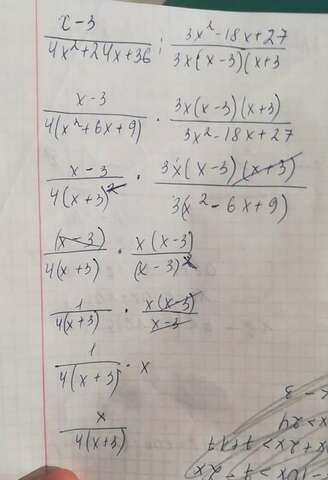 x-3 / 4x²+24x+36 : 3x²-18x+27 / 3x(x-3)(x+3
x-3 / 4(x²+6x+9) · 3x(x-3)(x+3) / 3x²-18x+27
x-3 / 4(x+3)² · 3x(x-3)(x+3) / 3(x²-6x+9)
(x-3) / 4(x+3) · x(x-3) / (x-3)²
1 / 4(x+3) · x(x-3) / x-3
1 / 4(x+3) · x
x / 4(x+3)
x>24